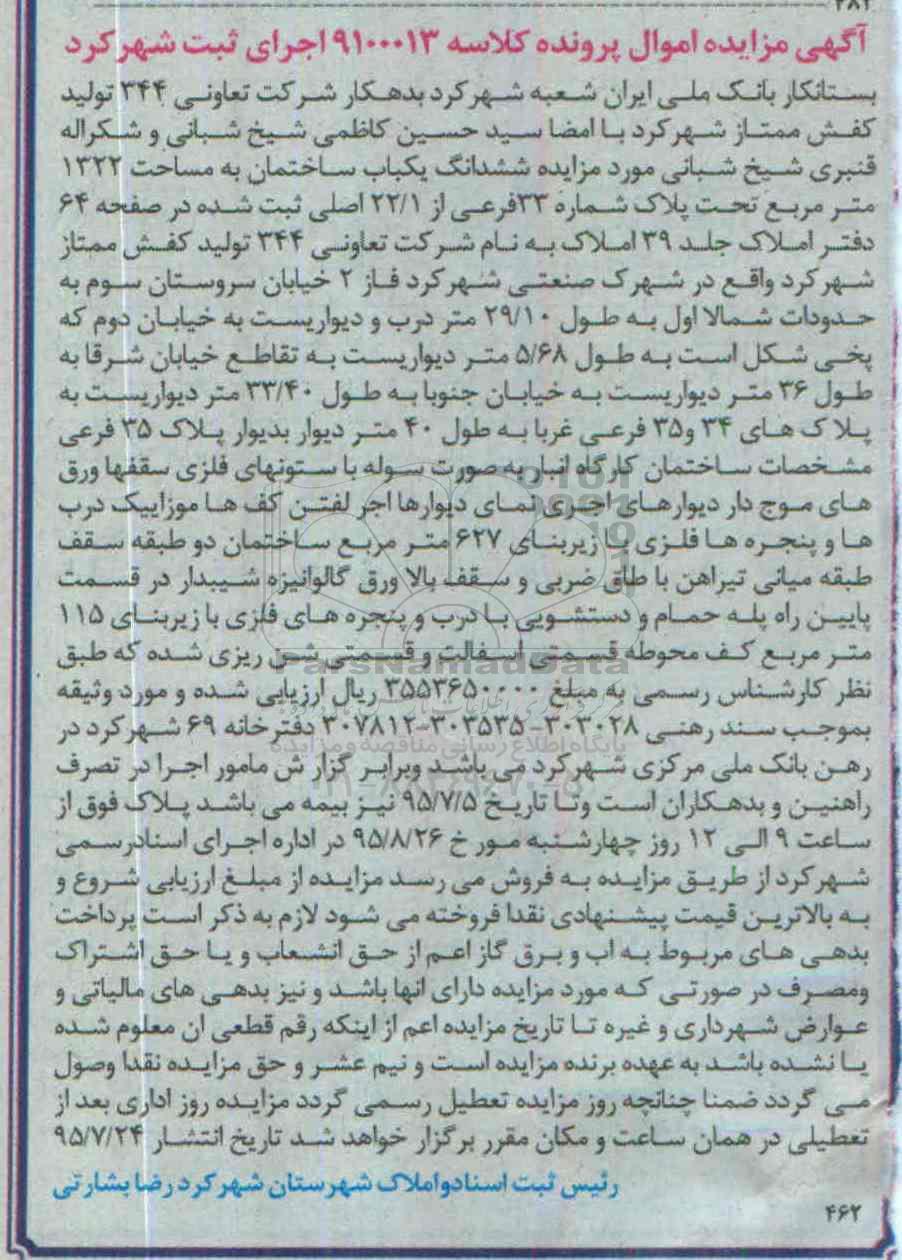 ۲۸۲
آگهی مزایده اموال پرونده کلاسه ۹۱۰۰۰۱۳ اجرای ثبت شهرکرد
بستانکار بانک ملی ایران شعبه شهرکرد بدهکار شرکت تعاونی ۳۴۴ تولید
کفش ممتاز شهرکرد با امضا سید حسین کاظمی شیخ شبانی و شکراله
قنبری شیخ شبانی مورد مزایده ششدانگ یکباب ساختمان به مساحت ۱۳۲۲
متر مربع تحت پلاک شماره ۳۳فرعی از ۲۲/۱ اصلی ثبت شده در صفحه ۶۴
دفتر املاک جلد ۳۹ املاک به نام شرکت تعاونی ۳۴۴ تولید کفش ممتاز
شهرکرد واقع در شهرک صنعتی شهرکرد فاز ۲ خیابان سروستان سوم به
حدودات شمالا اول به طول ۲۹/۱۰ متر درب و دیواریست به خیابان دوم که
پخی شکل است به طول ۵/۶۸ متر دیواریست به تقاطع خیابان شرقا به
طول ۳۶ متر دیواریست به خیابان جنوبا به طول ۳۳/۴۰ متر دیواریست به
پلاک های ۳۴ و۳۵ فرعی غربا به طول ۴۰ متر دیوار بدیوار پلاک ۳۵ فرعی
مشخصات ساختمان کارگاه انبار به صورت سوله با ستونهای فلزی سقفها ورق
های موج دار دیوارهای اجری نمای دیوارها اجر لفتن کف ها موزاییک درب
ها و پنجره ها فلزی با زیربنای ۶۲۷ متر مربع ساختمان دو طبقه سقف
طبقه میانی تیراهن با طاق ضربی و سقف بالا ورق گالوانیزه شیبدار در قسمت
پایین راه پله حمام و دستشویی با درب و پنجره های فلزی با زیربنای ۱۱۵
متر مربع کف محوطه قسمتی اسفالت و قسمتی شن ریزی شده که طبق
نظر کارشناس رسمی به مبلغ ۳۵۵۳۶۵۰۰۰۰ ریال ارزیابی شده و مورد وثیقه
بموجب سند رهنی ۳۰۳۰۲۸-۳۰۳۵۳۵-۳۰۷۸۱۲ دفترخانه ۶۹ شهرکرد در
رهن بانک ملی مرکزی شهرکرد می باشد وبرابر گزارش مامور اجرا در تصرف
راهنین و بدهکاران است وتا تاریخ ۹۵/۷/۵ نیز بیمه می باشد پلاک فوق از
ساعت ۹ الی ۱۲ روز چهارشنبه مورخ ۹۵/۸/۲۶ در اداره اجرای اسنادرسمی
شهرکرد از طریق مزایده به فروش می رسد مزایده از مبلغ ارزیابی شروع و
به بالاترین قیمت پیشنهادی نقدا فروخته می شود لازم به ذکر است پرداخت
بدهی های مربوط به اب و برق گاز اعم از حق انشعاب و یا حق اشتراک
ومصرف در صورتی که مورد مزایده دارای انها باشد و نیز بدهی های مالیاتی و
عوارض شهرداری و غیره تا تاریخ مزایده اعم از اینکه رقم قطعی ان معلوم شده
یا نشده باشد به عهده برنده مزایده است و نیم عشر و حق مزایده نقدا وصول
می گردد ضمنا چنانچه روز مزایده تعطیل رسمی گردد مزایده روز اداری بعد از
تعطیلی در همان ساعت و مکان مقرر برگزار خواهد شد تاریخ انتشار ۹۵/۷/۲۴
رئیس ثبت اسنادواملاک شهرستان شهرکرد رضا بشارتی
۴۶۲
ParsNamadData
پایگاه اطلاع رسانی مناقصه و مزایده